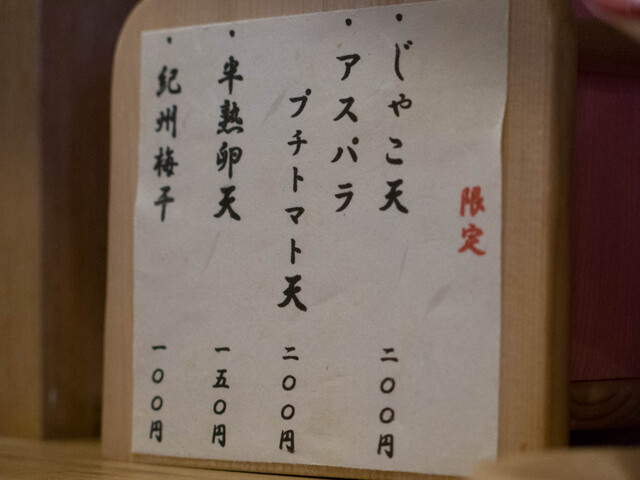 限定
・じゃこ天 二〇〇円
・アスパラ
プチトマト天 二〇〇円
・半熟卵天 一五〇円
・紀州梅干 一〇〇円